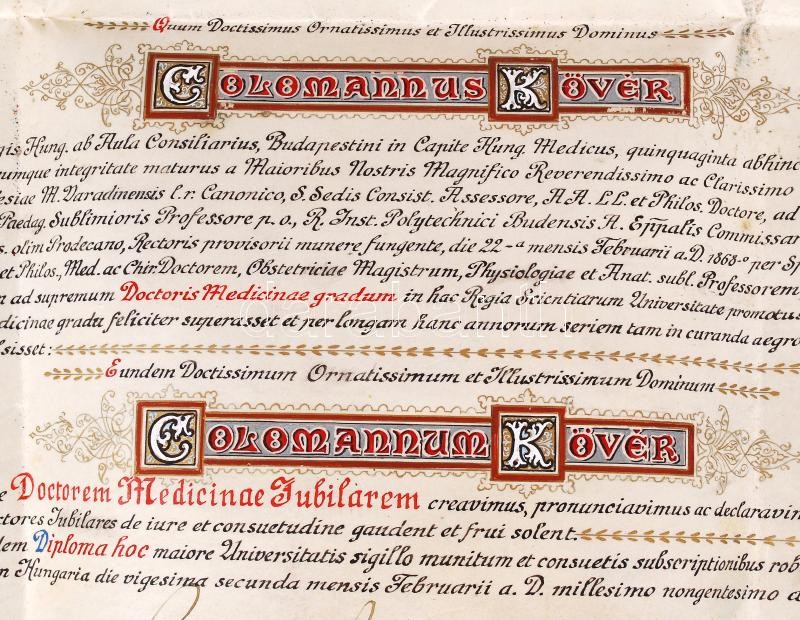 Quum Doctissimus Ornatissimus et Illustrissimus Dominus
COLOMANNUS KÖVÉR
gis Hung. ab Aula Consiliarius, Budapestini in Capite Hung. Medicus, quinquaginta abhinc
umque integritate maturus a Maioribus Nostris Magnifico Reverendissimo ac Clarissimo
esiae M. Varadinensis l.r. Canonico, S. Sedis Consist. Assessore, A A. L L. et Philos. Doctore, ad
Paedag. Sublimioris Professore p. o., R. Inst. Polytechnici Budensis A. Eppalis Commissar
s. olim Prodecano, Rectoris provisorii munere fungente, die 22-a mensis Februarii a. D. 1868-o per Sp
et Philos., Med. ac Chir. Doctorem, Obstetriciae Magistrum, Physiologiae et Anat. subl. Professorem
n ad supremum Doctoris Medicinae gradum in hac Regia Scientiarum Universitate promotus
dicinae gradu feliciter superasset et per longam hanc annorum seriem tam in curanda aegro
lsisset:
Eundem Doctissimum Ornatissimum et Illustrissimum Dominum
COLOMANNUM KÖVÉR
e Doctorem Medicinae Jubilarem creavimus, pronunciavimus ac declaravim
ctores Jubilares de iure et consuetudine gaudent et frui solent.
dem Diploma hoc maiore Universitatis sigillo munitum et consuetis subscriptionibus rob
n Hungaria die vigesima secunda mensis Februarii a. D. millesimo nongentesimo d
darabanth